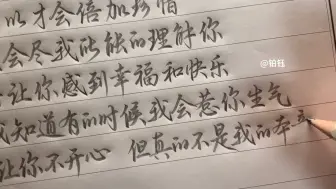 以才会倍加珍惜
会尽我所能的理解你
让你感到幸福和快乐
我知道有的时候我会惹你生气
让你不开心 但真的不是我的本
@铂钰